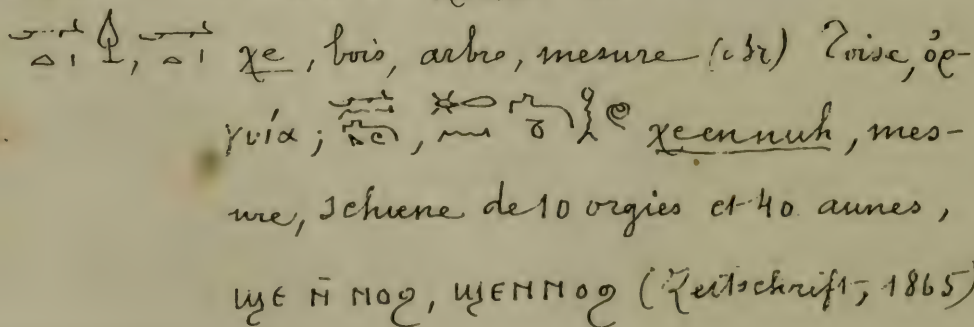 χe, bois, arbre, mesure (chr) Toise, ὀρ-
γυία; χeennuh, mes-
ure, schene de 10 orgies et 40 aunes,
ϣⲉ ⲛ̄ ⲛⲟϩ, ϣⲉⲛⲛⲟϩ (Zeitschrift, 1865)